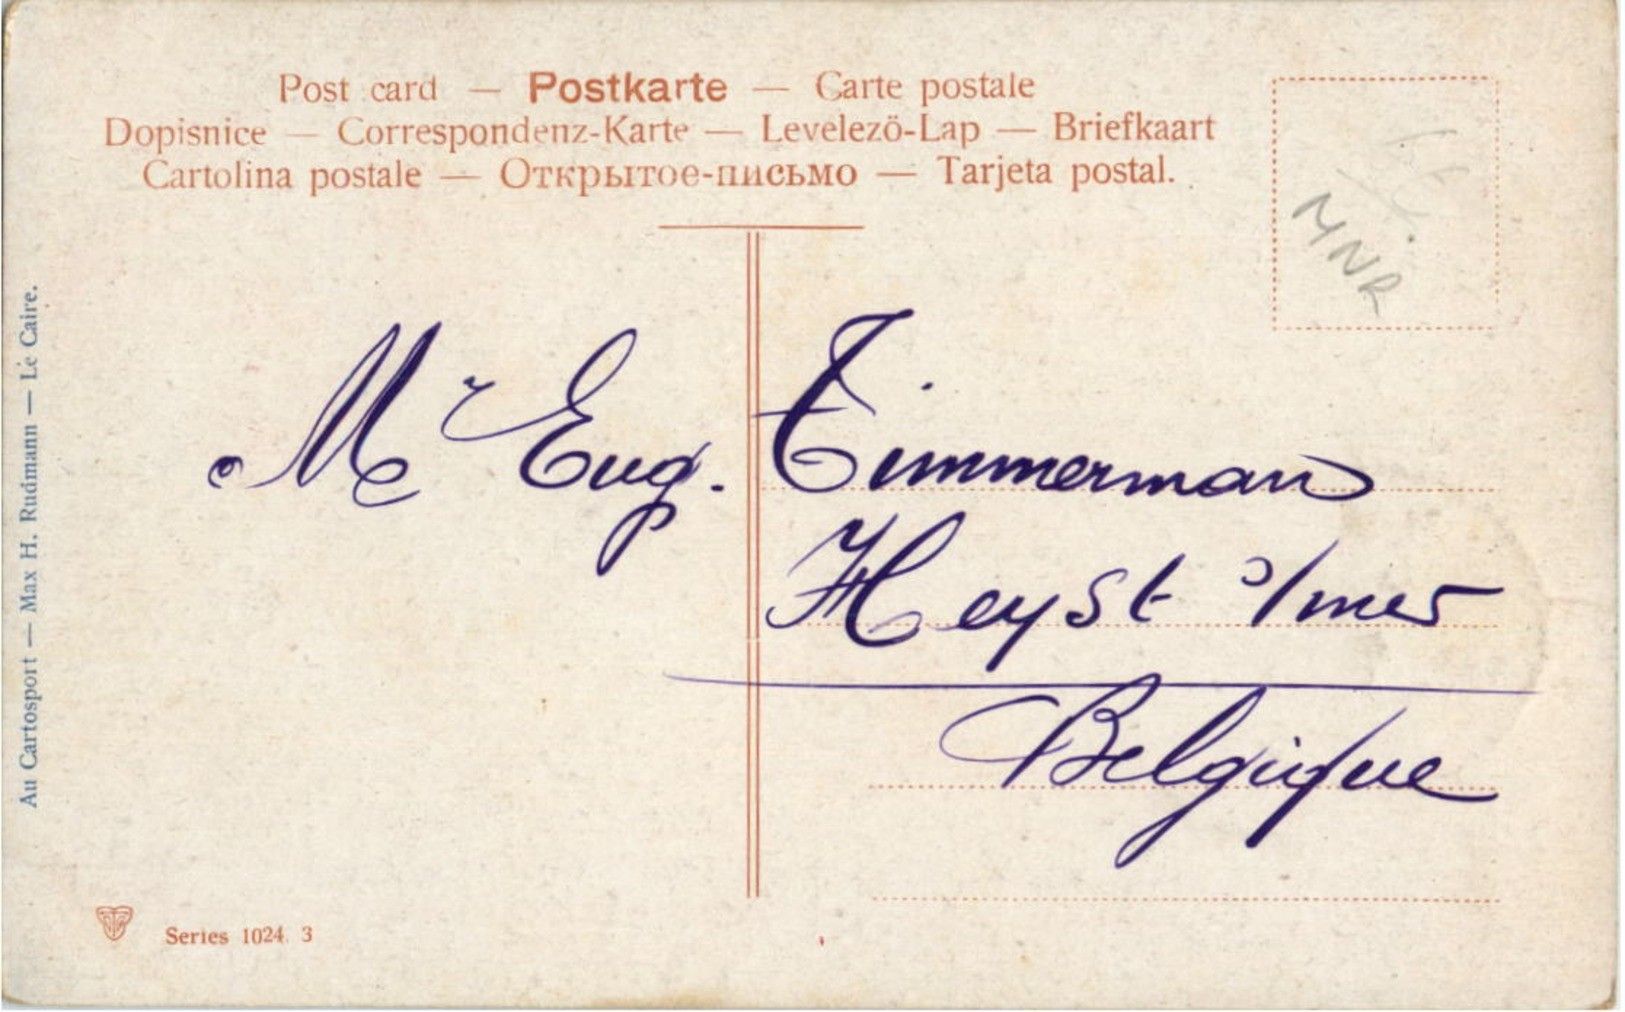 Post card — Postkarte — Carte postale
Dopisnice — Correspondenz-Karte — Levelezö-Lap — Briefkaart
Cartolina postale — Открытое-письмо — Tarjeta postal.
MNR
Mr Eug. Timmerman
Heyst s/mer
Belgique
Au Cartosport — Max H. Rudmann — Le Caire.
Series 1024. 3